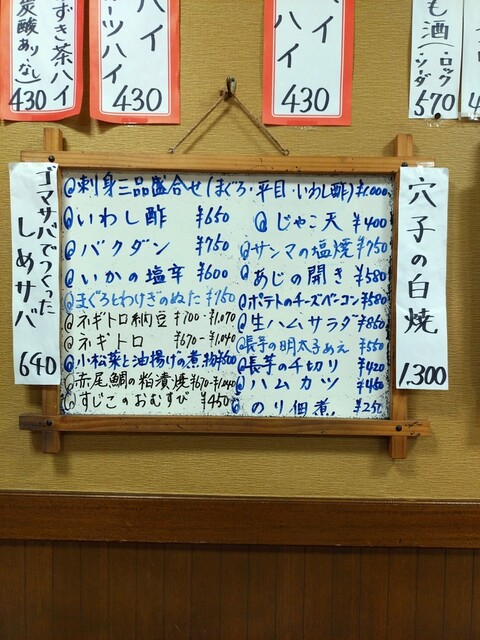 ずき茶ハイ
炭酸あり・なし
430
ハイ
ーツハイ
430
ハイ
430
も酒
(・ロック
・ソーダ)
570
4
ゴマサバでつくった
しめサバ
640
@刺身三品盛合せ(まぐろ・平目・いわし酢)¥1,000
@いわし酢 ¥650
@バクダン ¥750
@いかの塩辛 ¥600
@まぐろとわけぎのぬた ¥750
@ネギトロ納豆 ¥700-¥1,070
@ネギトロ ¥670-¥1,040
@小松菜と油揚げの煮物¥500
@赤尾鯛の粕漬焼¥670-¥1,040
@すじこのおむすび ¥450
@じゃこ天 ¥400
@サンマの塩焼¥750
@あじの開き ¥580
@ポテトのチーズベーコン¥580
@生ハムサラダ¥850
@長芋の明太子あえ ¥550
@長芋の千切り ¥420
@ハムカツ ¥450
@のり佃煮. ¥250
穴子の白焼
1,300